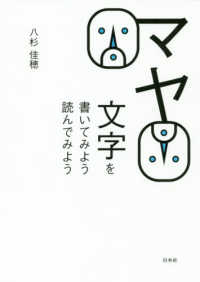 マヤ
文字を
書いてみよう
読んでみよう
八杉 佳穂
白水社